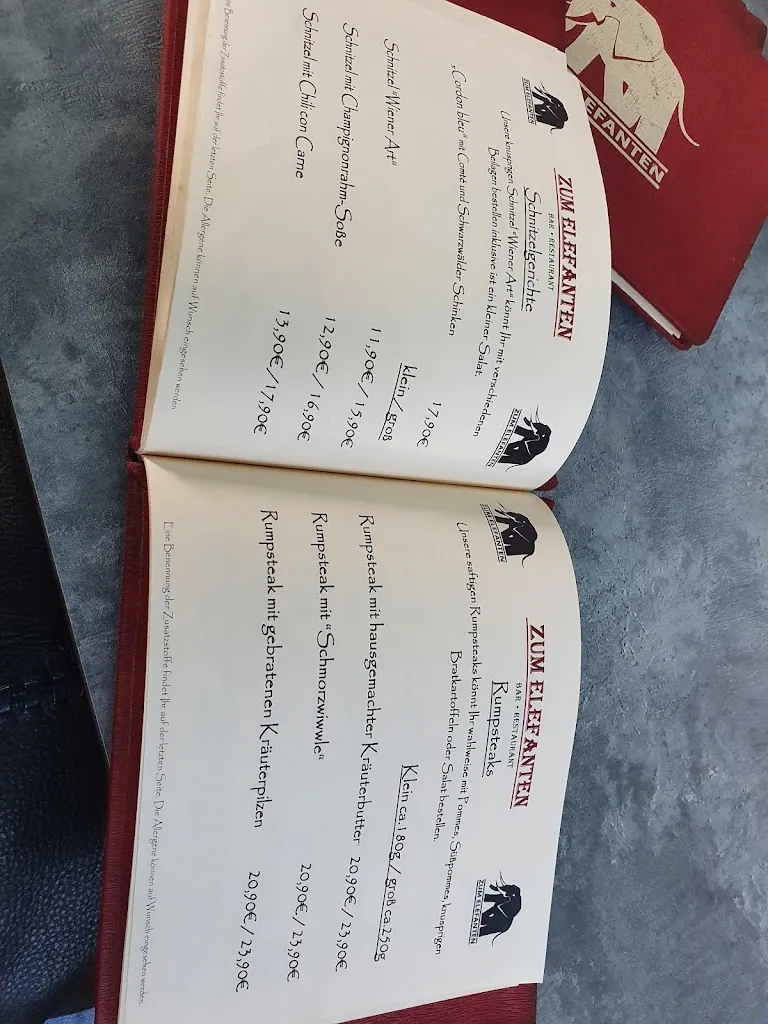 EFANTEN
ZUM ELEFANTEN
ZUM ELEFANTEN
ZUM ELEFANTEN
BAR • RESTAURANT
Schnitzelgerichte
Unsere knusprigen Schnitzel "Wiener Art" könnt Ihr mit verschiedenen
Beilagen bestellen inklusive ist ein kleiner Salat.
„Cordon bleu" mit Comté und Schwarzwälder Schinken 17,90€
klein / groß
Schnitzel "Wiener Art" 11,90€ / 15,90€
Schnitzel mit Champignonrahm-Soße 12,90€ / 16,90€
Schnitzel mit Chili con Carne 13,90€ / 17,90€
Eine Benennung der Zusatzstoffe findet Ihr auf der letzten Seite. Die Allergene können auf Wunsch eingesehen werden.
ZUM ELEFANTEN
ZUM ELEFANTEN
ZUM ELEFANTEN
BAR • RESTAURANT
Rumpsteaks
Unsere saftigen Rumpsteaks könnt Ihr wahlweise mit Pommes, Süßpommes, knusprigen
Bratkartoffeln oder Salat bestellen.
Klein ca.180g / groß ca.250g
Rumpsteak mit hausgemachter Kräuterbutter 20,90€ / 23,90€
Rumpsteak mit "Schmorzwiwwle" 20,90€ / 23,90€
Rumpsteak mit gebratenen Kräuterpilzen 20,90€ / 23,90€
Eine Benennung der Zusatzstoffe findet Ihr auf der letzten Seite. Die Allergene können auf Wunsch eingesehen werden.